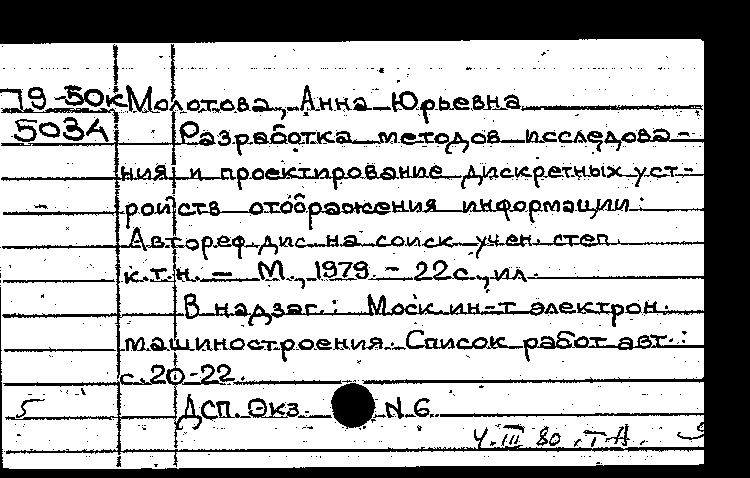 79-50к Молотова, Анна Юрьевна
5034 Разработка методов исследова-
ния и проектирование дискретных уст-
ройств отображения информации:
Автореф. дис. на соиск. учен. степ.
к.т.н. — М., 1979. - 22 с., ил.
В надзаг.: Моск. ин-т электрон.
машиностроения. Список работ авт.:
с. 20-22.
5 ДСП. Экз. N 6
4.III 80